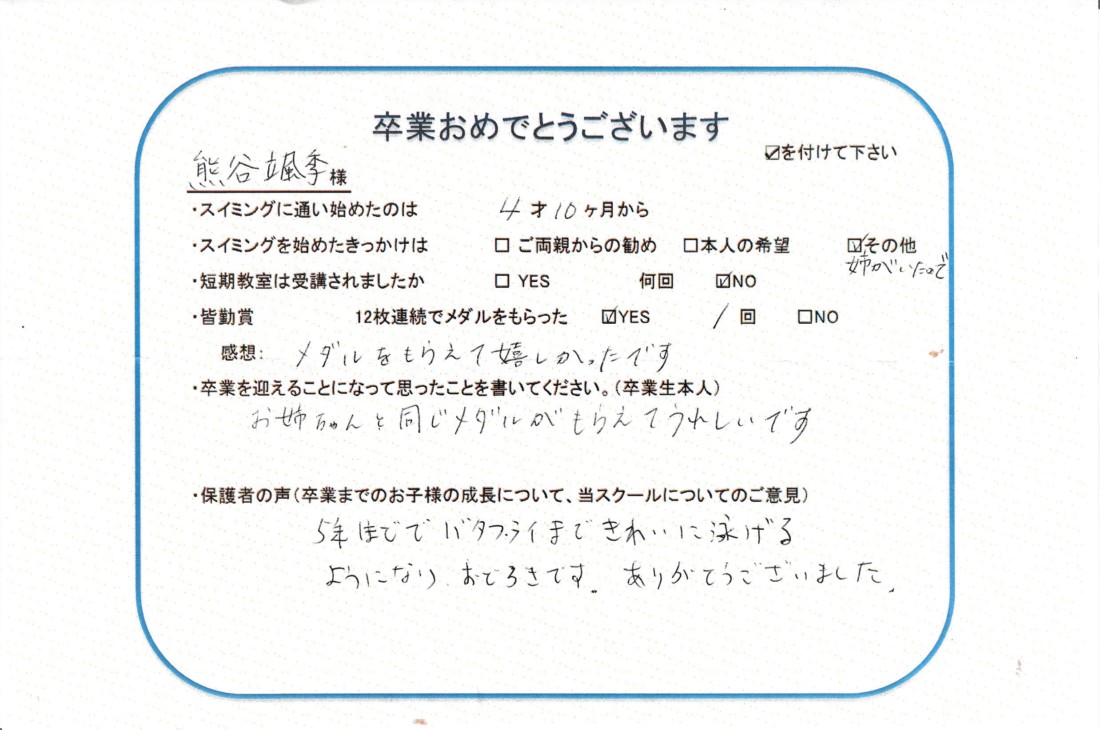 卒業おめでとうございます
☑を付けて下さい
熊谷颯季様
・スイミングに通い始めたのは 4才10ヶ月から
・スイミングを始めたきっかけは □ご両親からの勧め □本人の希望 ☑その他
姉がいたので
・短期教室は受講されましたか □YES 何回 ☑NO
・皆勤賞 12枚連続でメダルをもらった ☑YES 1回 □NO
感想: メダルをもらえて嬉しかったです
・卒業を迎えることになって思ったことを書いてください。(卒業生本人)
お姉ちゃんと同じメダルがもらえてうれしいです
・保護者の声(卒業までのお子様の成長について、当スクールについてのご意見)
5年ほどでバタフライまできれいに泳げる
ようになり、おどろきです。ありがとうございました。